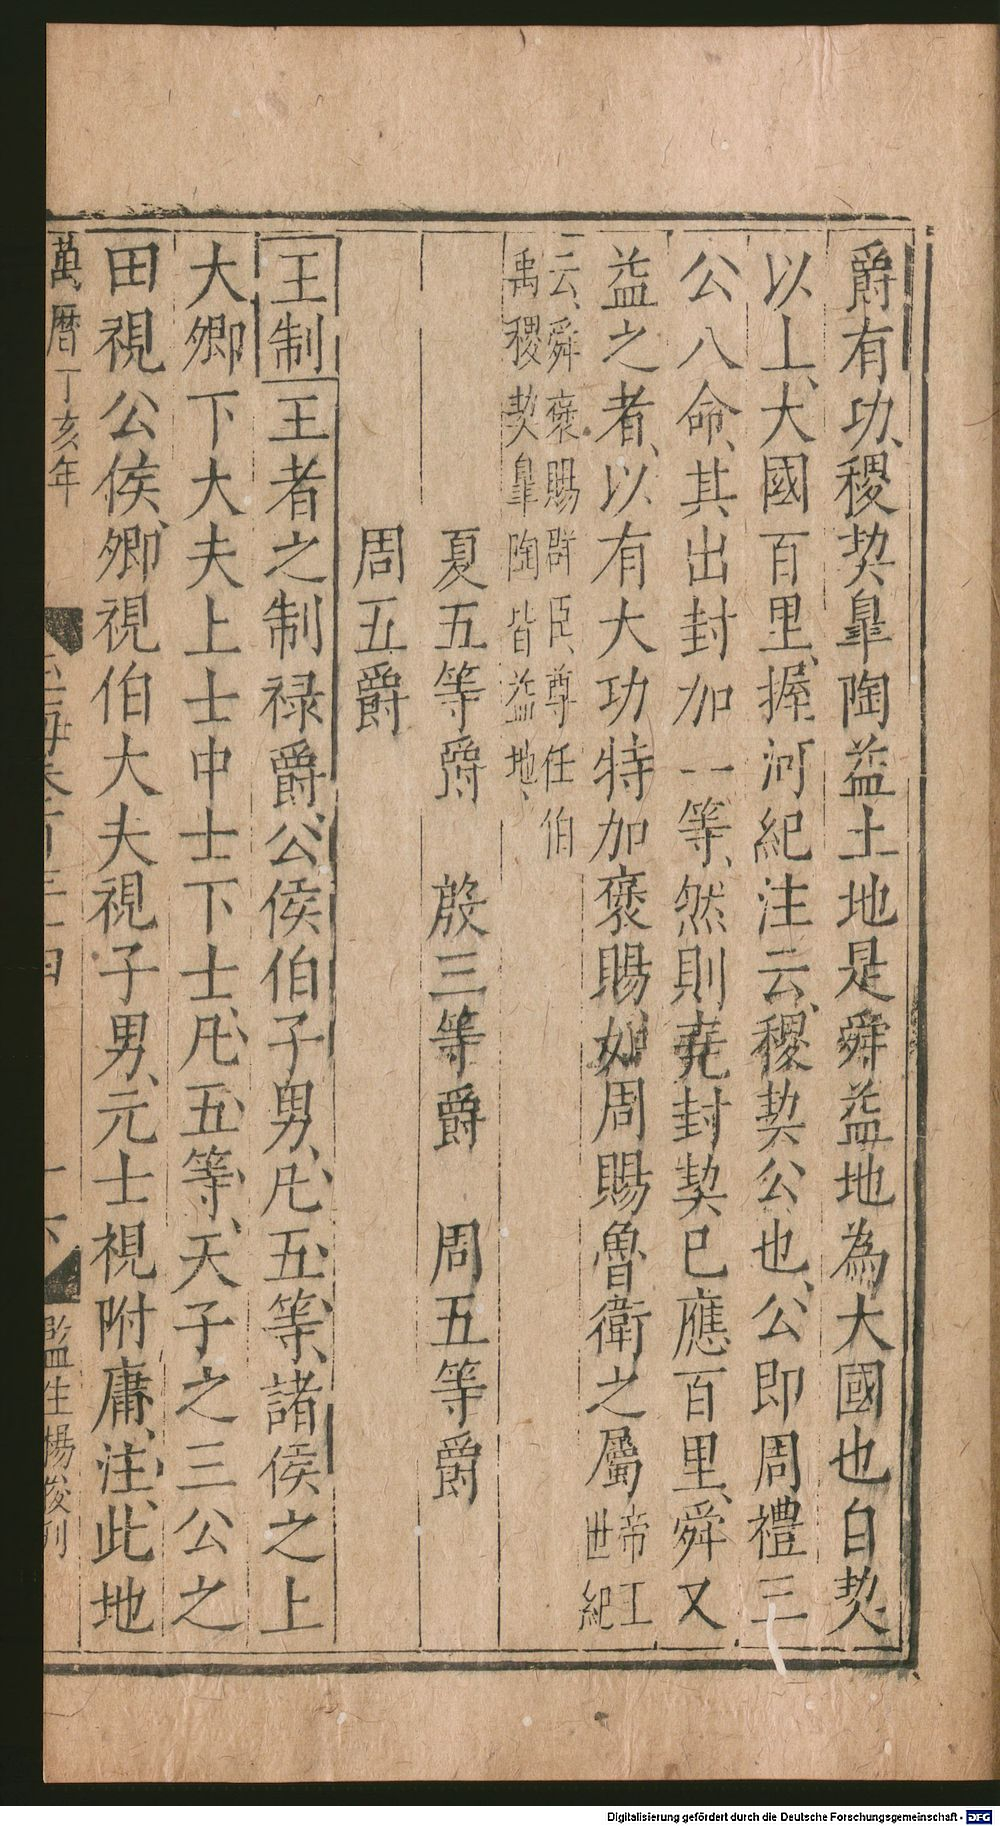 爵有功稷契臯陶益土地是舜益地為大國也自契
以上大國百里握河紀注云稷契公也公即周禮三
公八命其出封加一等然則堯封契已應百里舜又
益之者以有大功特加襃賜如周賜魯衛之屬帝王世紀
云舜襃賜群臣尊任伯
禹稷契臯陶皆益地
夏五等爵　殷三等爵　周五等爵
周五爵
王制王者之制禄爵公侯伯子男凡五等諸侯之上
大卿下大夫上士中士下士凡五等天子之三公之
田視公侯卿視伯大夫視子男元士視附庸注此地
萬曆丁亥年
監生楊俊刊
Digitalisierung gefördert durch die Deutsche Forschungsgemeinschaft - DFG